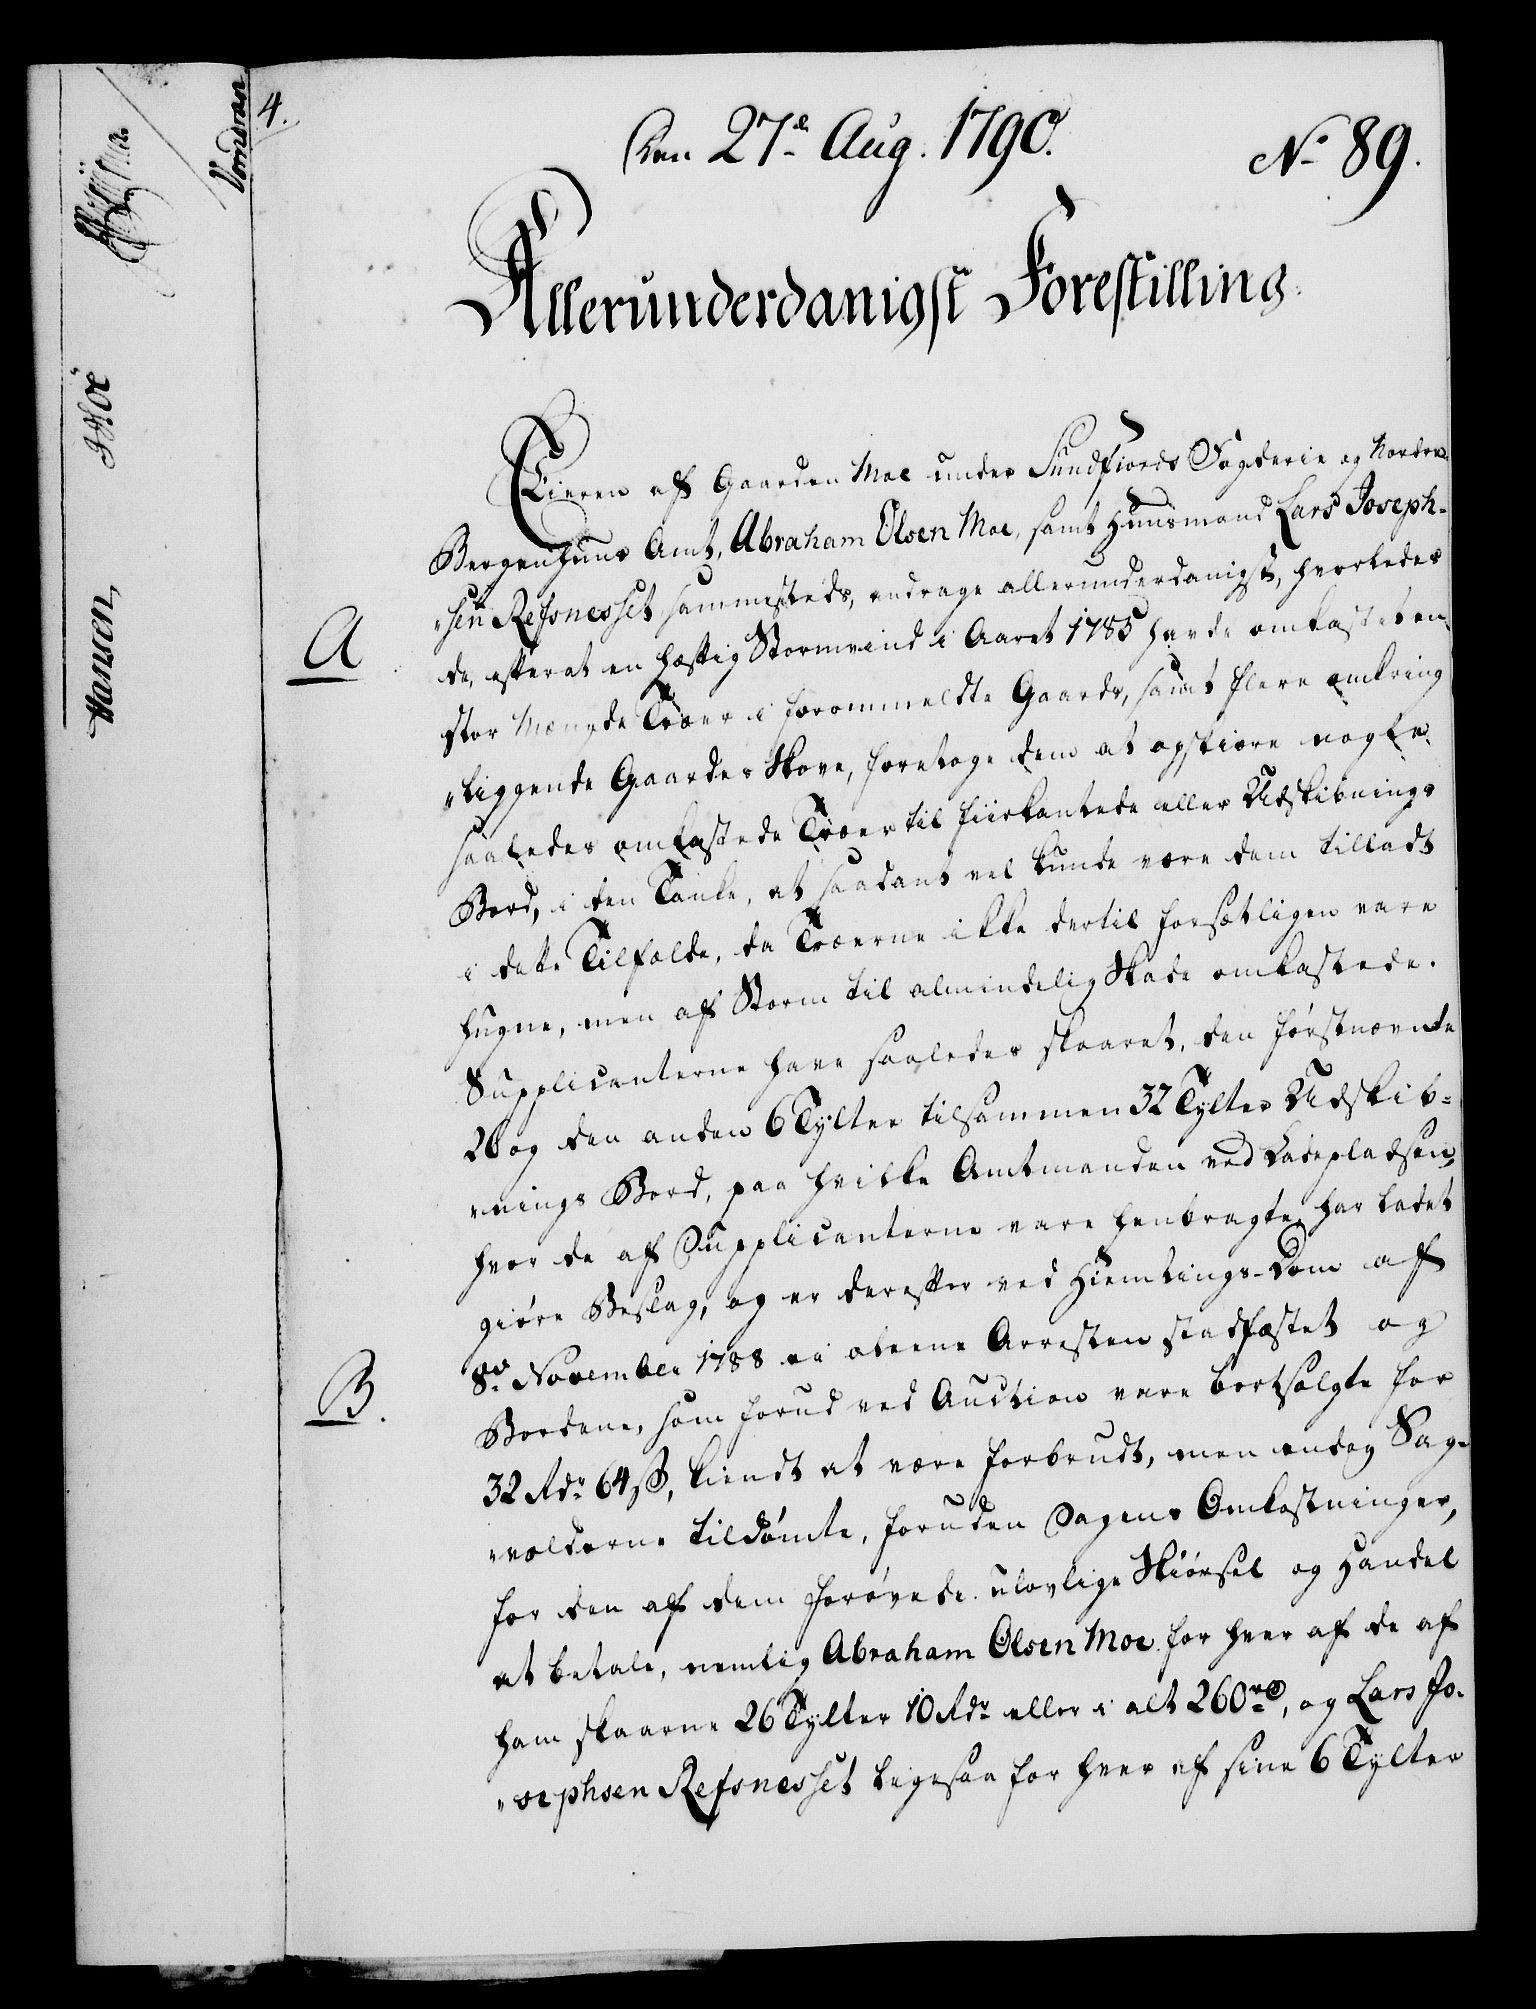 4.
Den 27de Aug. 1790.
No 89.
Allerunderdanigst Forestilling.
Eieren af Gaarden Moe under Sundfiords Fogderie og Nordre
Bergenhuus Amt, Abraham Olsen Moe, samt Huusmand Lars Joseph-
"sen Refsnesset sammesteds, andrage allerunderdanigst, hvorledes
A
de, efterat en heftig Stormvind i Aaret 1785 havde omkastet en
stor Mængde Træer i forommeldte Gaards, samt flere omkring
"liggende Gaardes Skove, foretoge dem at opskiære nogle
saaledes omkastede Træer til fiirkantede eller Udskibnings
Bord, i den Tanke, at saadant vel kunde være dem tilladt
i dette Tilfælde, da Træerne ikke dertil forsætligen vare
hugne, men af Storm til almindelig Skade omkastede.
Supplicanterne have saaledes skaaret, den førstnævnte
26 og den anden 6 Tylter tilsammen 32 Tylter Udskib-
"nings Bord, paa hvilke Amtmanden ved Ladepladsen,
hvor de af Supplicanterne vare henbragte, har ladet
giøre Beslag, og er derefter ved Hiemtings-Dom af
8de November 1788 ei alene Arresten stadfæstet og
B.
Bordene, som forud ved Auction vare bortsolgte for
32 Rdr 64 ß, kiendt at være forbrudt, men endog Sag-
"volderne tildømte, foruden Sagens Omkostninger,
for den af dem forøvede ulovlige Skiørsel og Handel
at betale, nemlig Abraham Olsen Moe for hver af de af
ham skaarne 26 Tylter 10 Rdr eller i alt 260 rd, og Lars Jo-
"sephsen Refsnesset ligesaa for hver af sine 6 Tylter
Hansen,
Moe
Vormdran